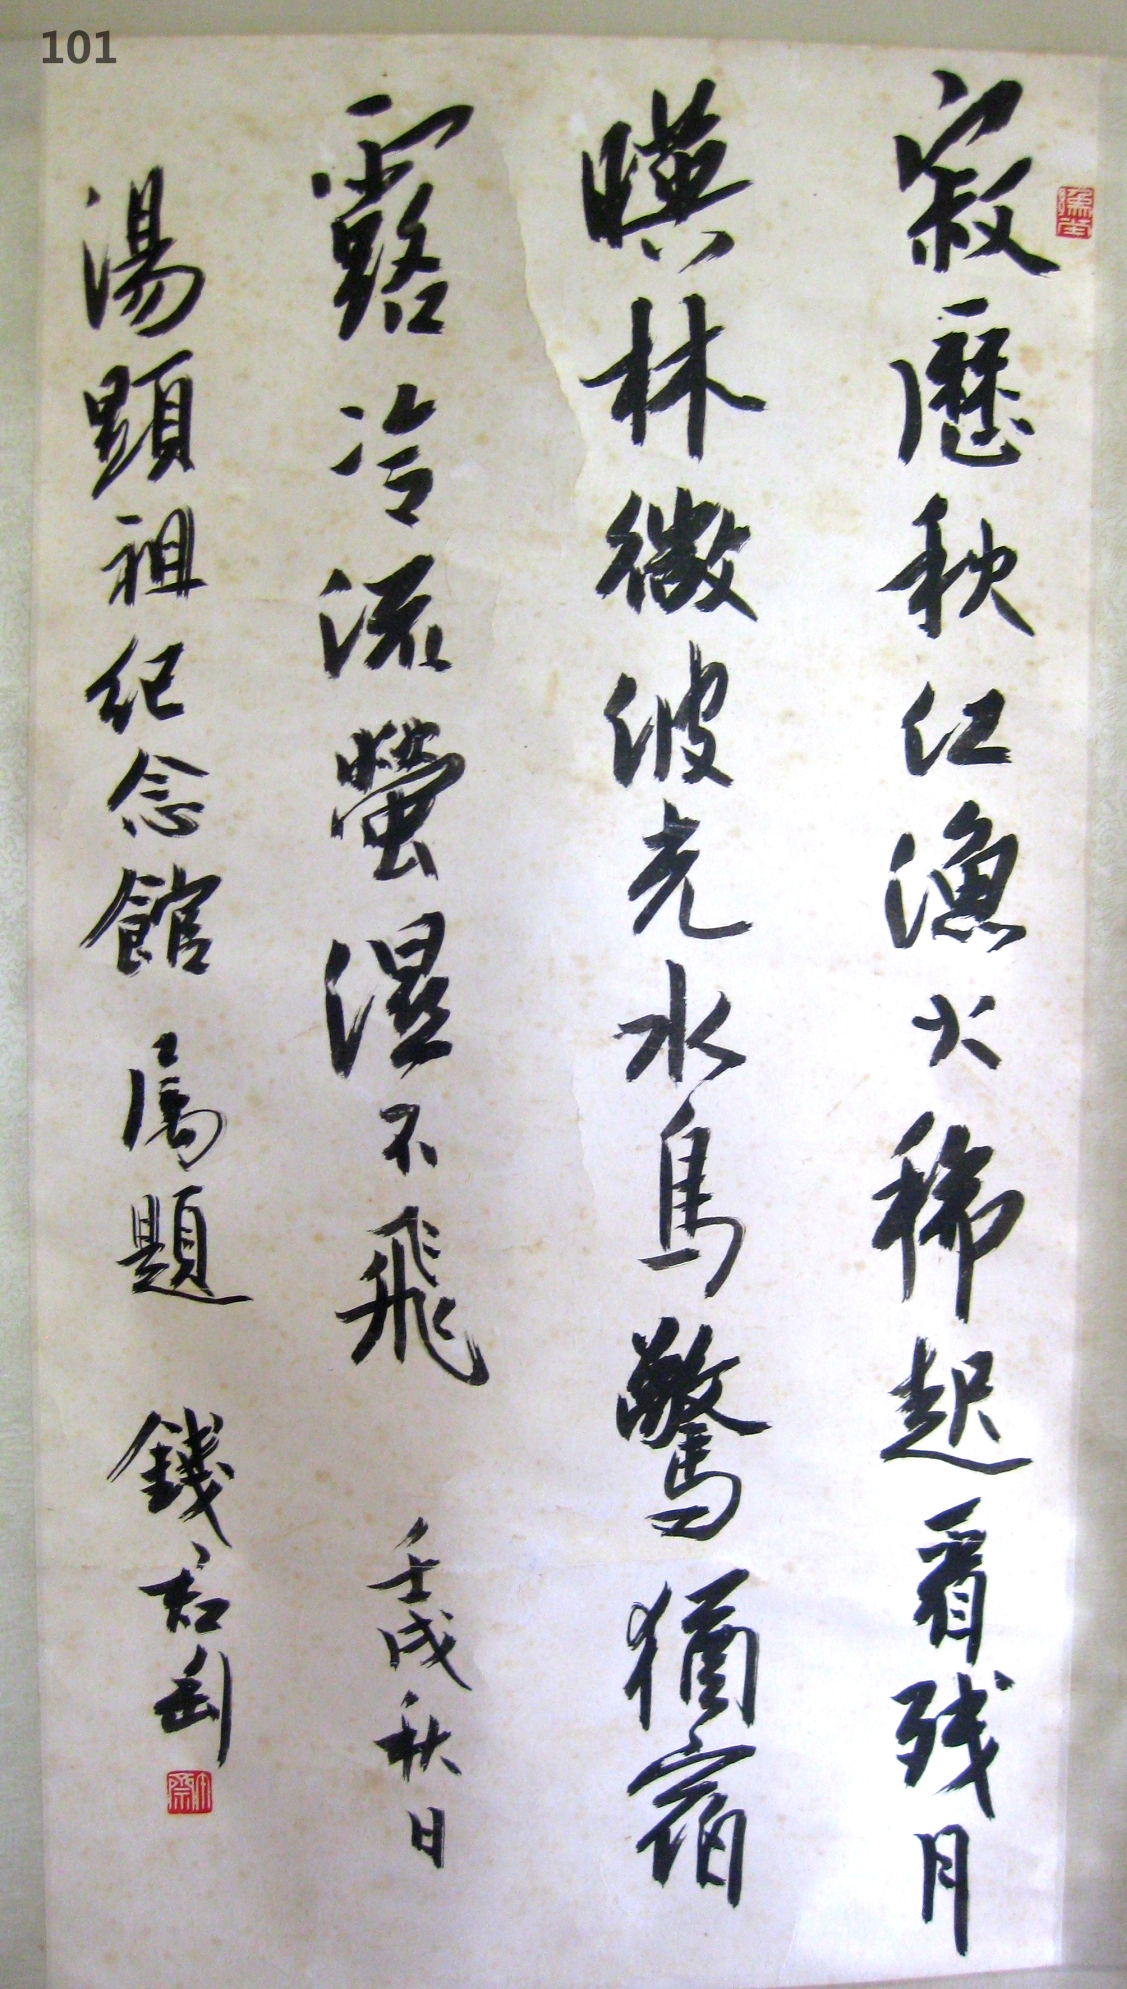 101
寂歷秋江漁火稀起看残月
暎林微波光水鳥驚猶宿
露冷流螢湿不飛 壬戌秋日
湯顕祖紀念館属題 錢君匋